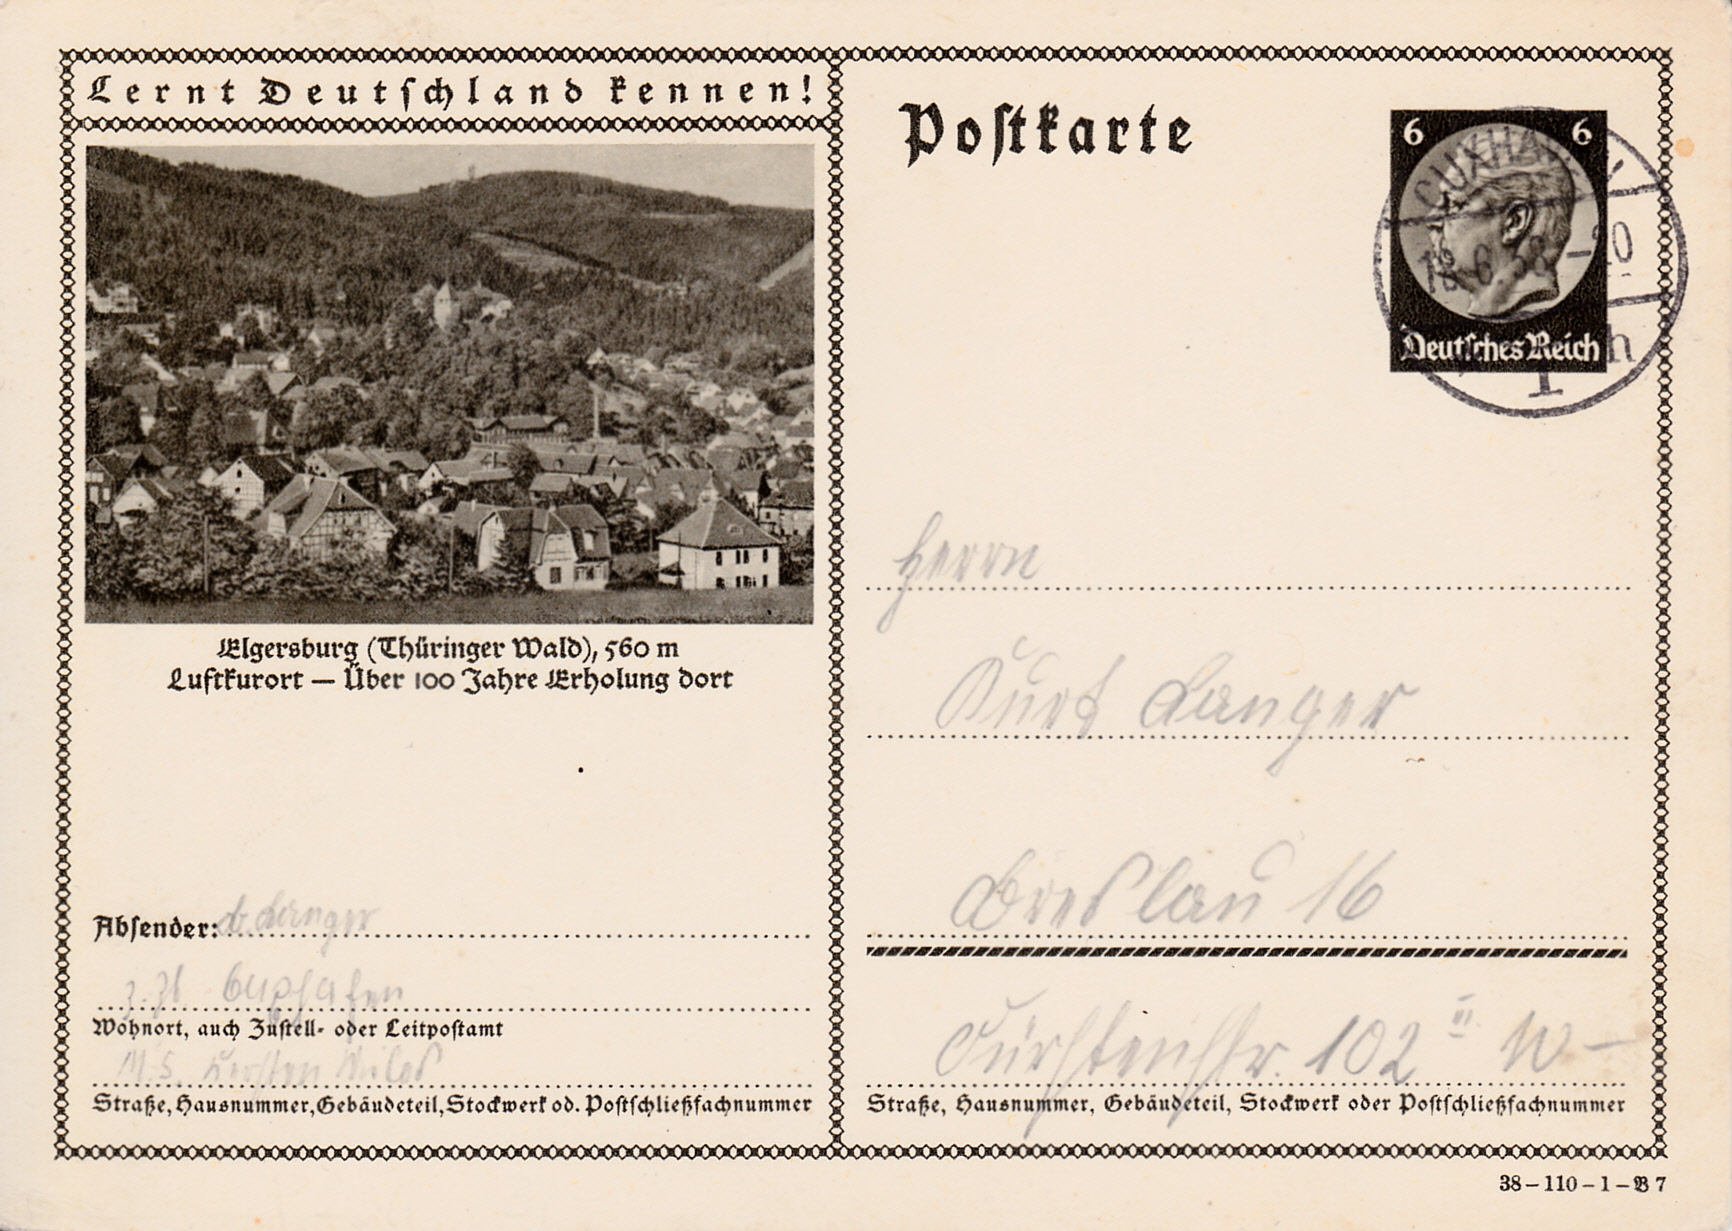 Lernt Deutschland kennen!
Elgersburg (Thüringer Wald), 560 m
Luftkurort — Über 100 Jahre Erholung dort
Absender: Langer
z. Zt. Cuxhafen
Wohnort, auch Zustell- oder Leitpostamt
M.S.
Straße, Hausnummer, Gebäudeteil, Stockwerk od. Postschließfachnummer
Postkarte
6 6
Deutsches Reich
CUXHAVEN
18.6.38.-20
1 h
Herrn
Kurt Langer
Breslau 16
Fürstenstr. 102 II
Straße, Hausnummer, Gebäudeteil, Stockwerk oder Postschließfachnummer
38-110-1-B 7